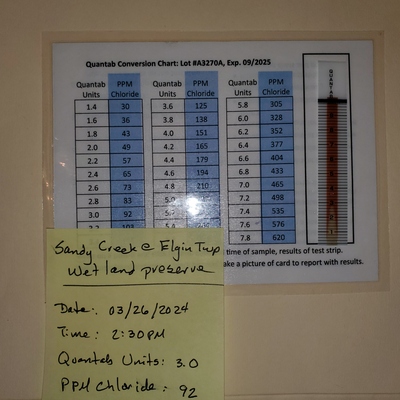 Quantab Conversion Chart: Lot #A3270A, Exp. 09/2025
Quantab Units PPM Chloride Quantab Units PPM Chloride Quantab Units PPM Chloride
1.4 30 3.6 125 5.8 305
1.6 36 3.8 138 6.0 328
1.8 43 4.0 151 6.2 352
2.0 49 4.2 165 6.4 377
2.2 57 4.4 179 6.6 404
2.4 65 4.6 194 6.8 433
2.6 73 4.8 210 7.0 465
2.8 83 5.0 7.2 498
3.0 92 7.4 535
7.6 576
7.8 620
QUANTAB
time of sample, results of test strip.
ake a picture of card to report with results.
Sandy Creek @ Elgin Twp
Wetland preserve
Date: 03/26/2024
Time: 2:30PM
Quantab Units: 3.0
PPM Chloride: 92